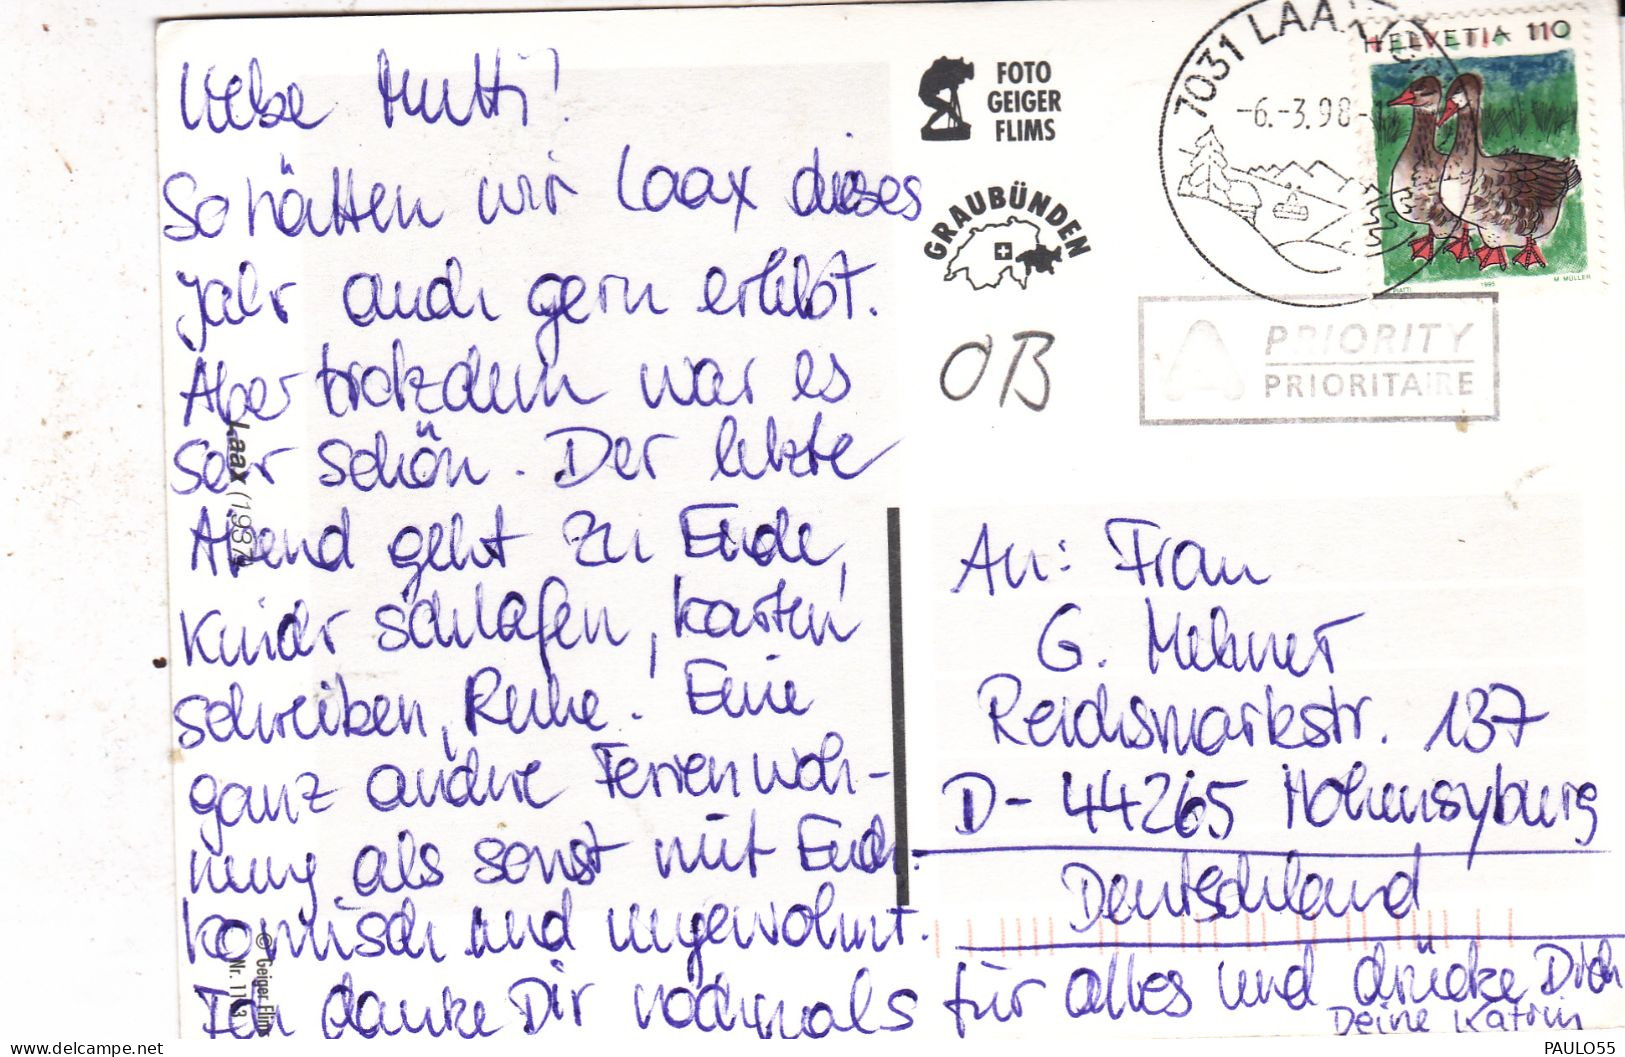 Liebe Mutti!
So hätten wir Laax dieses
Jahr auch gern erlebt.
Aber trotzdem war es
sehr schön. Der letzte
Abend geht zu Ende,
Kinder schlafen, Karten
schreiben, Ruhe. Eine
ganz andre Ferienwoh-
nung als sonst mit Euch.
komisch und ungewohnt.
Ich danke Dir nochmals für alles und drücke Dich
Deine Katrin
Laax (1987)
© Geiger Flims
FOTO
GEIGER
FLIMS
GRAUBÜNDEN
OB
7031 LAAX
-6.-3.98-
HELVETIA 110
1995
M. MÜLLER
A PRIORITY
PRIORITAIRE
An: Frau
G. Mehner
Reichsmarkstr. 137
D-44265 Hohensyburg
Deutschland
https://www.delcampe.net
PAULO55